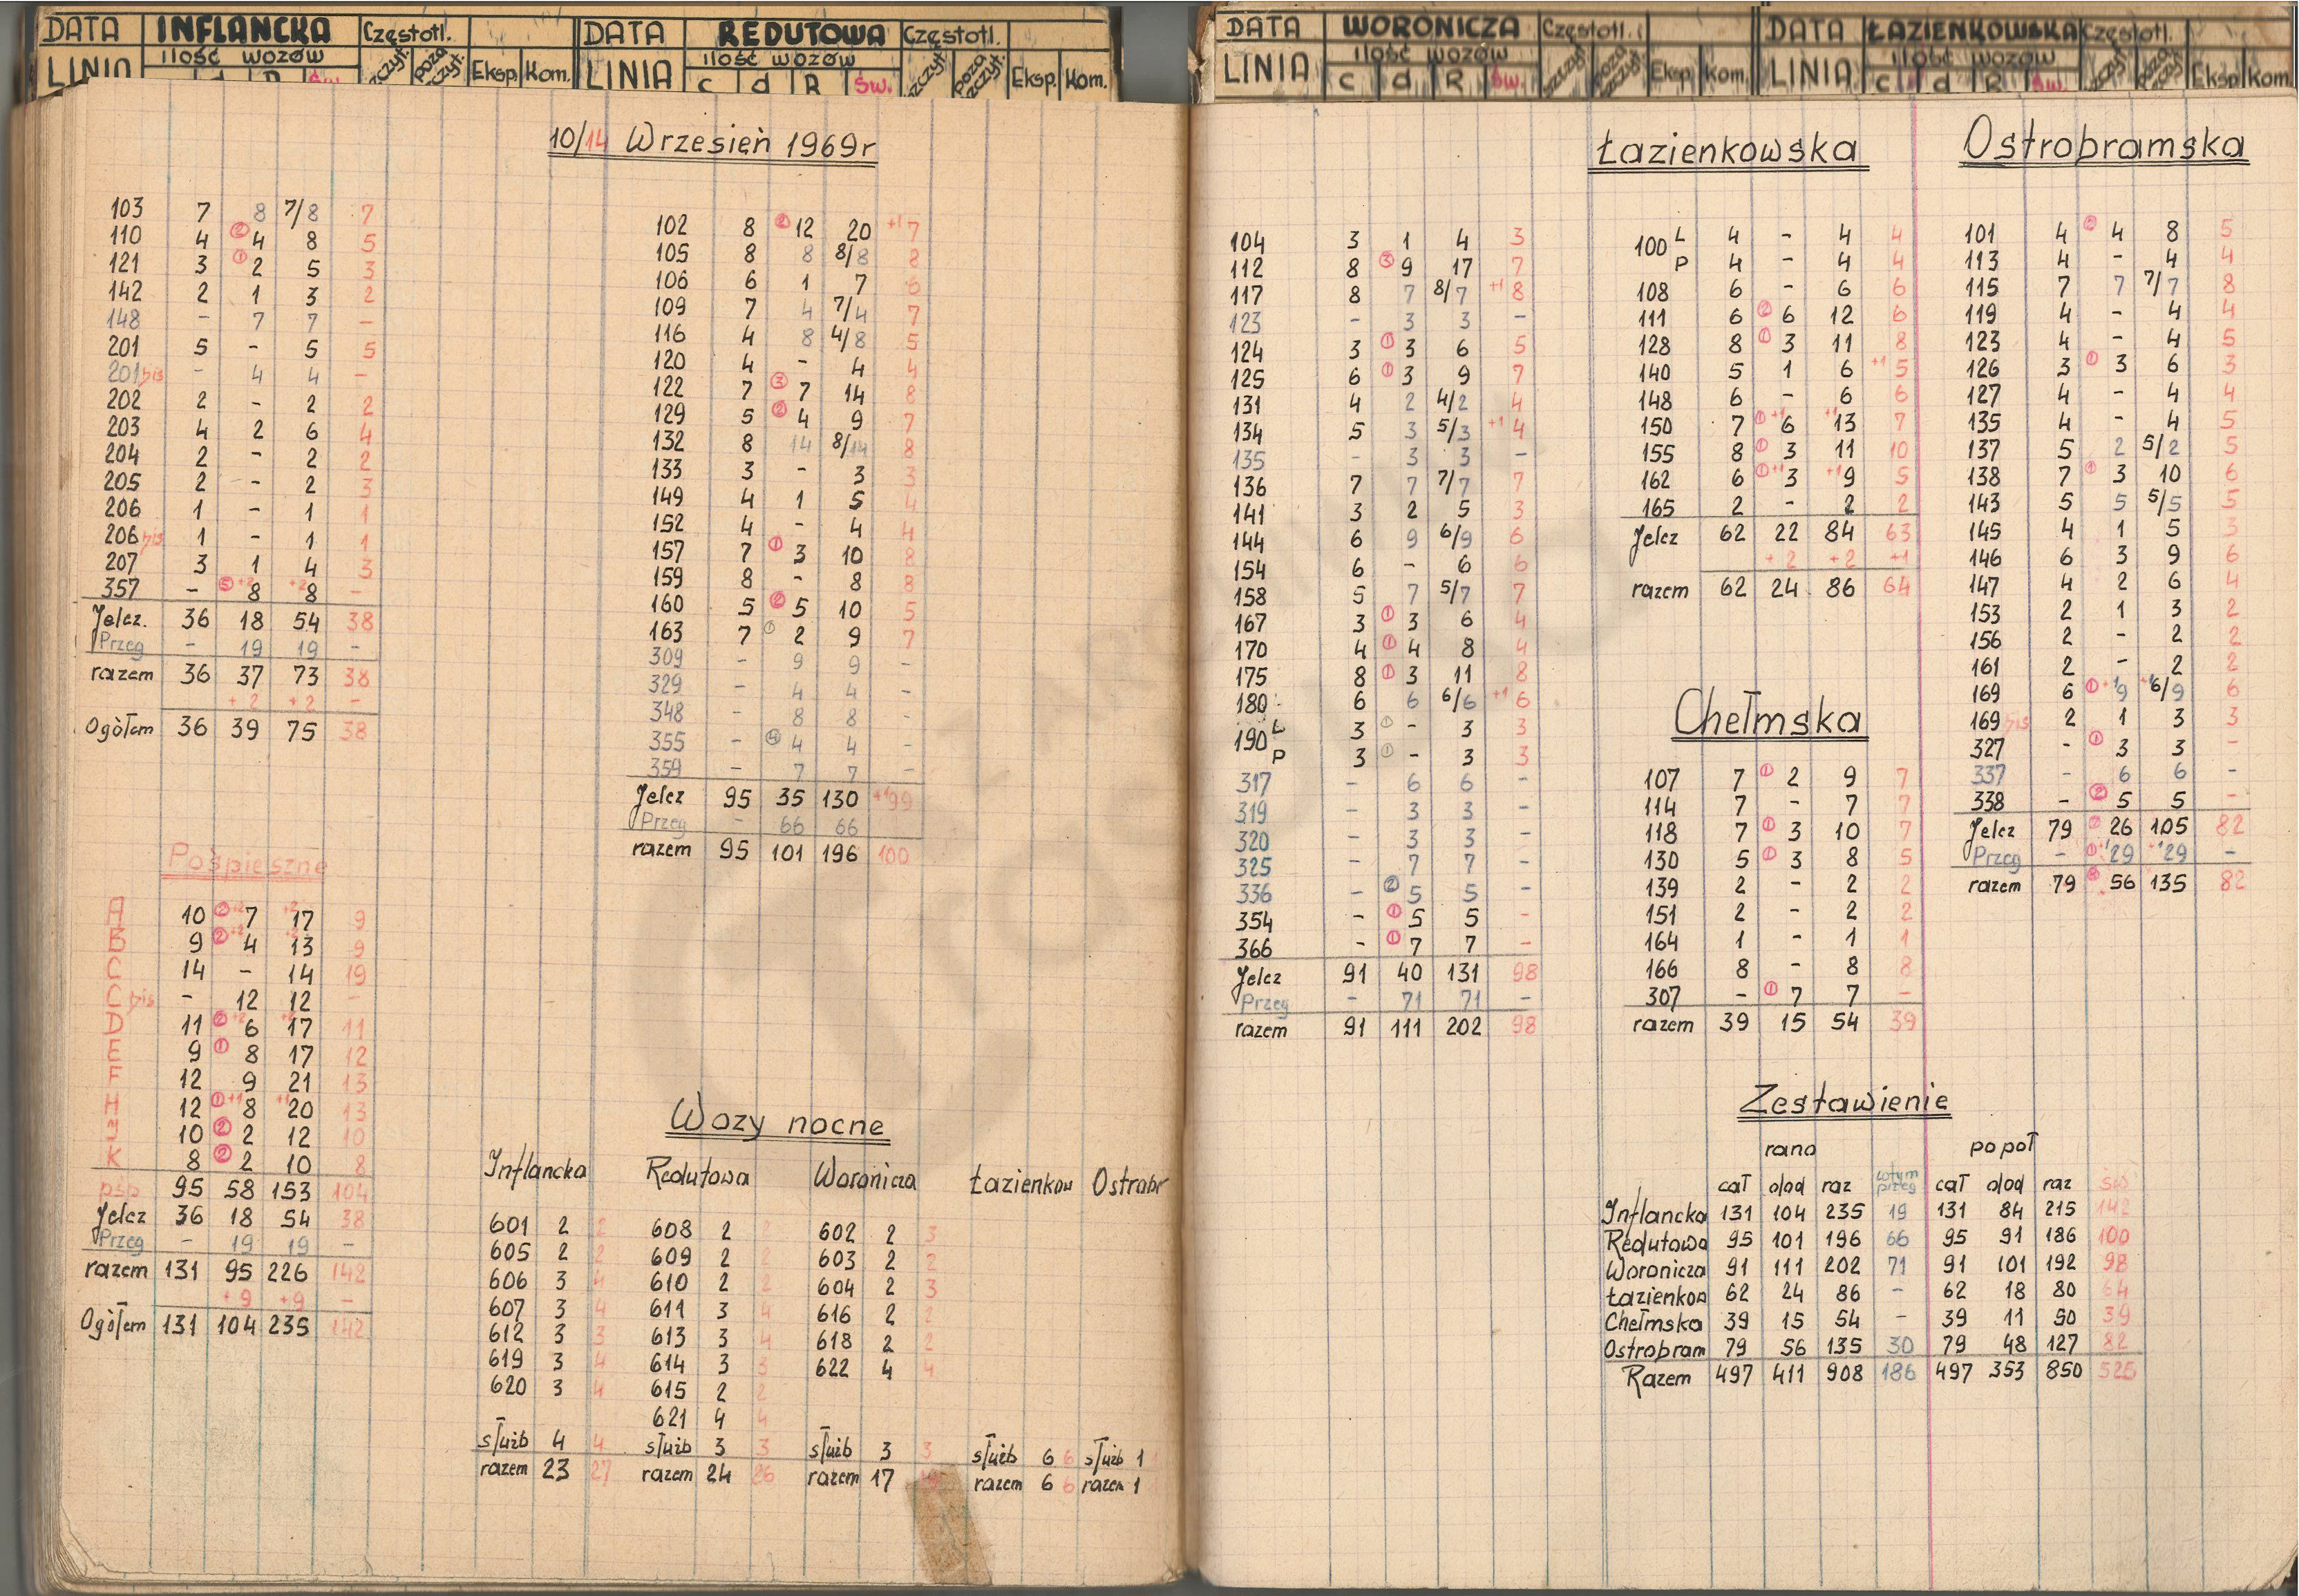 DATA INFLANCKA Częstotl. DATA REDUTOWA Częstotl.
LINIA ilość wozów szczyt. poza szczyt. Eksp. Kom. LINIA ilość wozów c d R Św. szczyt. poza szczyt. Eksp. Kom.
10/14 Wrzesień 1969r
103 7 8 7/8 7
110 4 ② 4 8 5
121 3 ① 2 5 3
142 2 1 3 2
148 - 7 7 -
201 5 - 5 5
201bis - 4 4 -
202 2 - 2 2
203 4 2 6 4
204 2 - 2 2
205 2 - 2 3
206 1 - 1 1
206bis 1 - 1 1
207 3 1 4 3
357 - ⑤ +2 8 +2 8 -
Jelcz. 36 18 54 38
Przeg - 19 19 -
razem 36 37 73 38
+2 +2 -
Ogółem 36 39 75 38
Pośpieszne
A 10 ② +2 7 +2 17 9
B 9 ② +2 4 +2 13 9
C 14 - 14 19
C bis - 12 12 -
D 11 ② +2 6 +2 17 11
E 9 ① 8 17 12
F 12 9 21 13
H 12 ① +1 8 +1 20 13
J 10 ② 2 12 10
K 8 ② 2 10 8
pśp 95 58 153 104
Jelcz 36 18 54 38
Przeg - 19 19 -
razem 131 95 226 142
+9 +9 -
Ogółem 131 104 235 142
102 8 ② 12 20 +1 7
105 8 8 8/8 8
106 6 1 7 6
109 7 4 7/4 7
116 4 8 4/8 5
120 4 - 4 4
122 7 ③ 7 14 8
129 5 ② 4 9 7
132 8 14 8/14 8
133 3 - 3 3
149 4 1 5 4
152 4 - 4 4
157 7 ① 3 10 8
159 8 - 8 8
160 5 ② 5 10 5
163 7 ① 2 9 7
309 - 9 9 -
329 - 4 4 -
348 - 8 8 -
355 - ④ 4 4 -
359 - 7 7 -
Jelcz 95 35 130 +1 99
Przeg - 66 66
razem 95 101 196 100
Wozy nocne
Inflancka Redutowa Woronicza Łazienkow Ostrobr
601 2 2 608 2 2 602 2 3
605 2 2 609 2 2 603 2 2
606 3 4 610 2 2 604 2 3
607 3 4 611 3 4 616 2 2
612 3 3 613 3 4 618 2 2
619 3 4 614 3 3 622 4 4
620 3 4 615 2 2
621 4 4
służb 4 4 służb 3 3 służb 3 3 służb 6 6 służb 1
razem 23 27 razem 24 26 razem 17 razem 6 6 razem 1
DATA WORONICZA Częstotl. DATA ŁAZIENKOWSKA Częstotl.
LINIA ilość wozów c d R Św. szczyt poza szczyt. Eksp. Kom. LINIA ilość wozów c d R Św. Eksp. Kom.
104 3 1 4 3
112 8 ③ 9 17 7
117 8 7 8/7 +1 8
123 - 3 3 -
124 3 ① 3 6 5
125 6 ① 3 9 7
131 4 2 4/2 4
134 5 3 5/3 +1 4
135 - 3 3 -
136 7 7 7/7 7
141 3 2 5 3
144 6 9 6/9 6
154 6 - 6 6
158 5 7 5/7 7
167 3 ① 3 6 4
170 4 ① 4 8 4
175 8 ① 3 11 8
180 6 6 6/6 +1 6
190 L 3 ① - 3 3
P 3 ① - 3 3
317 - 6 6 -
319 - 3 3 -
320 - 3 3 -
325 - 7 7 -
336 - ② 5 5 -
354 - ① 5 5 -
366 - ① 7 7 -
Jelcz 91 40 131 98
Przeg - 71 71 -
razem 91 111 202 98
Łazienkowska
100 L 4 - 4 4
P 4 - 4 4
108 6 - 6 6
111 6 ② 6 12 6
128 8 ① 3 11 8
140 5 1 6 +1 5
148 6 - 6 6
150 7 ① +1 6 +1 13 7
155 8 ① 3 11 10
162 6 ① +1 3 +1 9 5
165 2 - 2 2
Jelcz 62 22 84 63
+2 +2 +1
razem 62 24 86 64
Chełmska
107 7 ① 2 9 7
114 7 - 7 7
118 7 ① 3 10 7
130 5 ① 3 8 5
139 2 - 2 2
151 2 - 2 2
164 1 - 1 1
166 8 - 8 8
307 - ① 7 7 -
razem 39 15 54 39
Ostrobramska
101 4 ② 4 8 5
113 4 - 4 4
115 7 7 7/7 8
119 4 - 4 4
123 4 - 4 5
126 3 ① 3 6 3
127 4 - 4 4
135 4 - 4 5
137 5 2 5/2 5
138 7 ① 3 10 6
143 5 5 5/5 5
145 4 1 5 3
146 6 3 9 6
147 4 2 6 4
153 2 1 3 2
156 2 - 2 2
161 2 - 2 2
169 6 ① +1 9 +1 6/9 6
169bis 2 1 3 3
327 - ① 3 3 -
337 - 6 6 -
338 - ② 5 5 -
Jelcz 79 26 105 82
Przeg - ① +1 29 +1 29 -
razem 79 56 135 82
Zestawienie
rano popoł
cał dod raz wtym przeg cał dod raz św
Inflancka 131 104 235 19 131 84 215 142
Redutowa 95 101 196 66 95 91 186 100
Woronicza 91 111 202 71 91 101 192 98
Łazienkow 62 24 86 - 62 18 80 64
Chełmska 39 15 54 - 39 11 50 39
Ostrobram 79 56 135 30 79 48 127 82
Razem 497 411 908 186 497 353 850 525